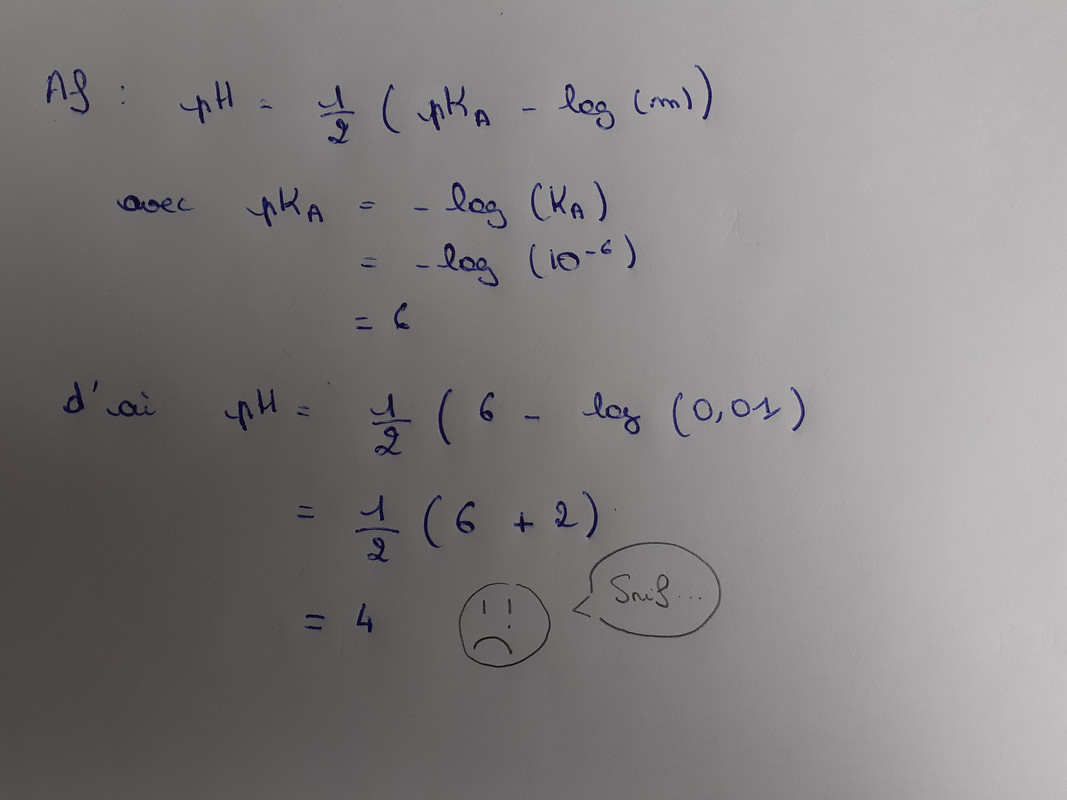 Af : pH = 1/2 ( pKA - log (m))
avec pKA = - log (KA)
= - log (10⁻⁶)
= 6
d'où pH = 1/2 ( 6 - log (0,01)
= 1/2 ( 6 + 2)
= 4
Snif...